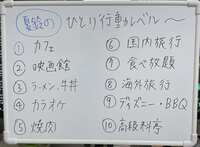 夏絵の
ひとり行動のレベル～
① カフェ
② 映画館
③ ラーメン、牛丼
④ カラオケ
⑤ 焼肉
⑥ 国内旅行
⑦ 食べ放題
⑧ 海外旅行
⑨ ディズニー・BBQ
⑩ 高級料亭